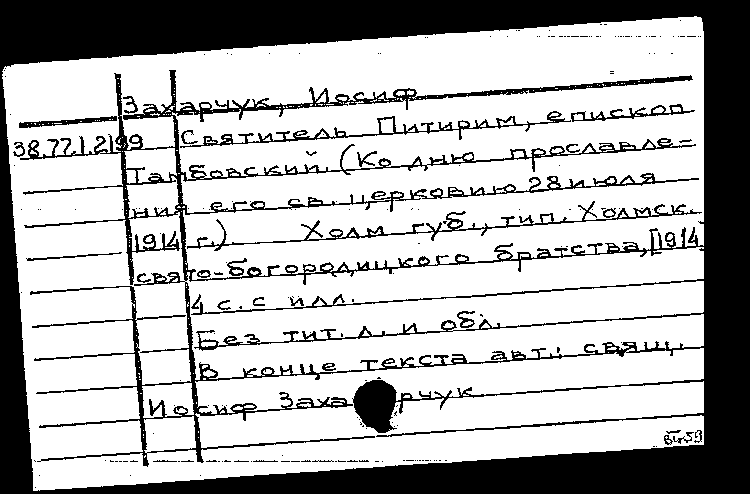 Захарчук, Иосиф
38.77.1.2|99 Святитель Питирим, епископ
Тамбовский. (Ко дню прославле=
ния его св. церковию 28 июля
1914 г.) Холм губ., тип. Холмск.
свято-богородицкого братства, [1914]
4 с. с илл.
Без тит. л. и обл.
В конце текста авт.: свящ.
Иосиф Захарчук